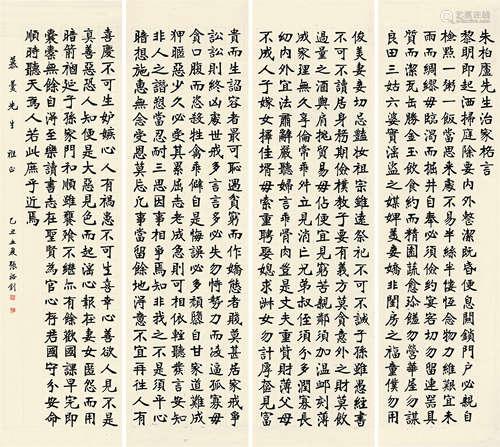 朱柏廬先生治家格言
黎明即起洒掃庭除要內外整潔既昏便息關鎖門戶必親自
檢點一粥一飯當思來處不易半絲半縷恆念物力維艱宜未
雨而綢繆毋臨渴而掘井自奉必須儉約宴客切勿留連器具
質而潔瓦缶勝金玉飲食約而精園蔬愈珍饈勿營華屋勿謀
良田三姑六婆實淫盜之媒婢美妾嬌非閨房之福童僕勿用
俊美妻妾切忌豔妝祖宗雖遠祭祀不可不誠子孫雖愚經書
不可不讀居身務期儉樸教子要有義方莫貪意外之財莫飲
過量之酒與肩挑貿易毋佔便宜見窮苦親鄰須加溫卹刻薄
成家理無久享倫常乖舛立見消亡兄弟叔姪須分多潤寡長
幼內外宜法肅辭嚴聽婦言乖骨肉豈是丈夫重貲財薄父母
不成人子嫁女擇佳壻毋索重聘娶媳求淑女勿計厚奩見富
貴而生諂容者最可恥遇貧窮而作嬌態者賤莫甚居家戒爭
訟訟則終凶處世戒多言言多必失勿恃勢力而凌逼孤寡勿
貪口腹而恣殺牲禽乖僻自是悔誤必多頹惰自甘家道難成
狎暱惡少久必受其累屈志老成急則可相依輕聽發言安知
非人之譖愬當忍耐三思因事相爭焉知非我之不是須平心
暗想施惠無念受恩莫忘凡事當留餘地得意不宜再往人有
喜慶不可生妒嫉心人有禍患不可生喜幸心善欲人見不是
真善惡恐人知便是大惡見色而起淫心報在妻女匿怨而用
暗箭禍延子孫家門和順雖饔飧不繼亦有餘歡國課早完即
囊橐無餘自得至樂讀書志在聖賢為官心存君國守分安命
順時聽天為人若此庶乎近焉
先生 雅正
乙丑五夏張裕釗